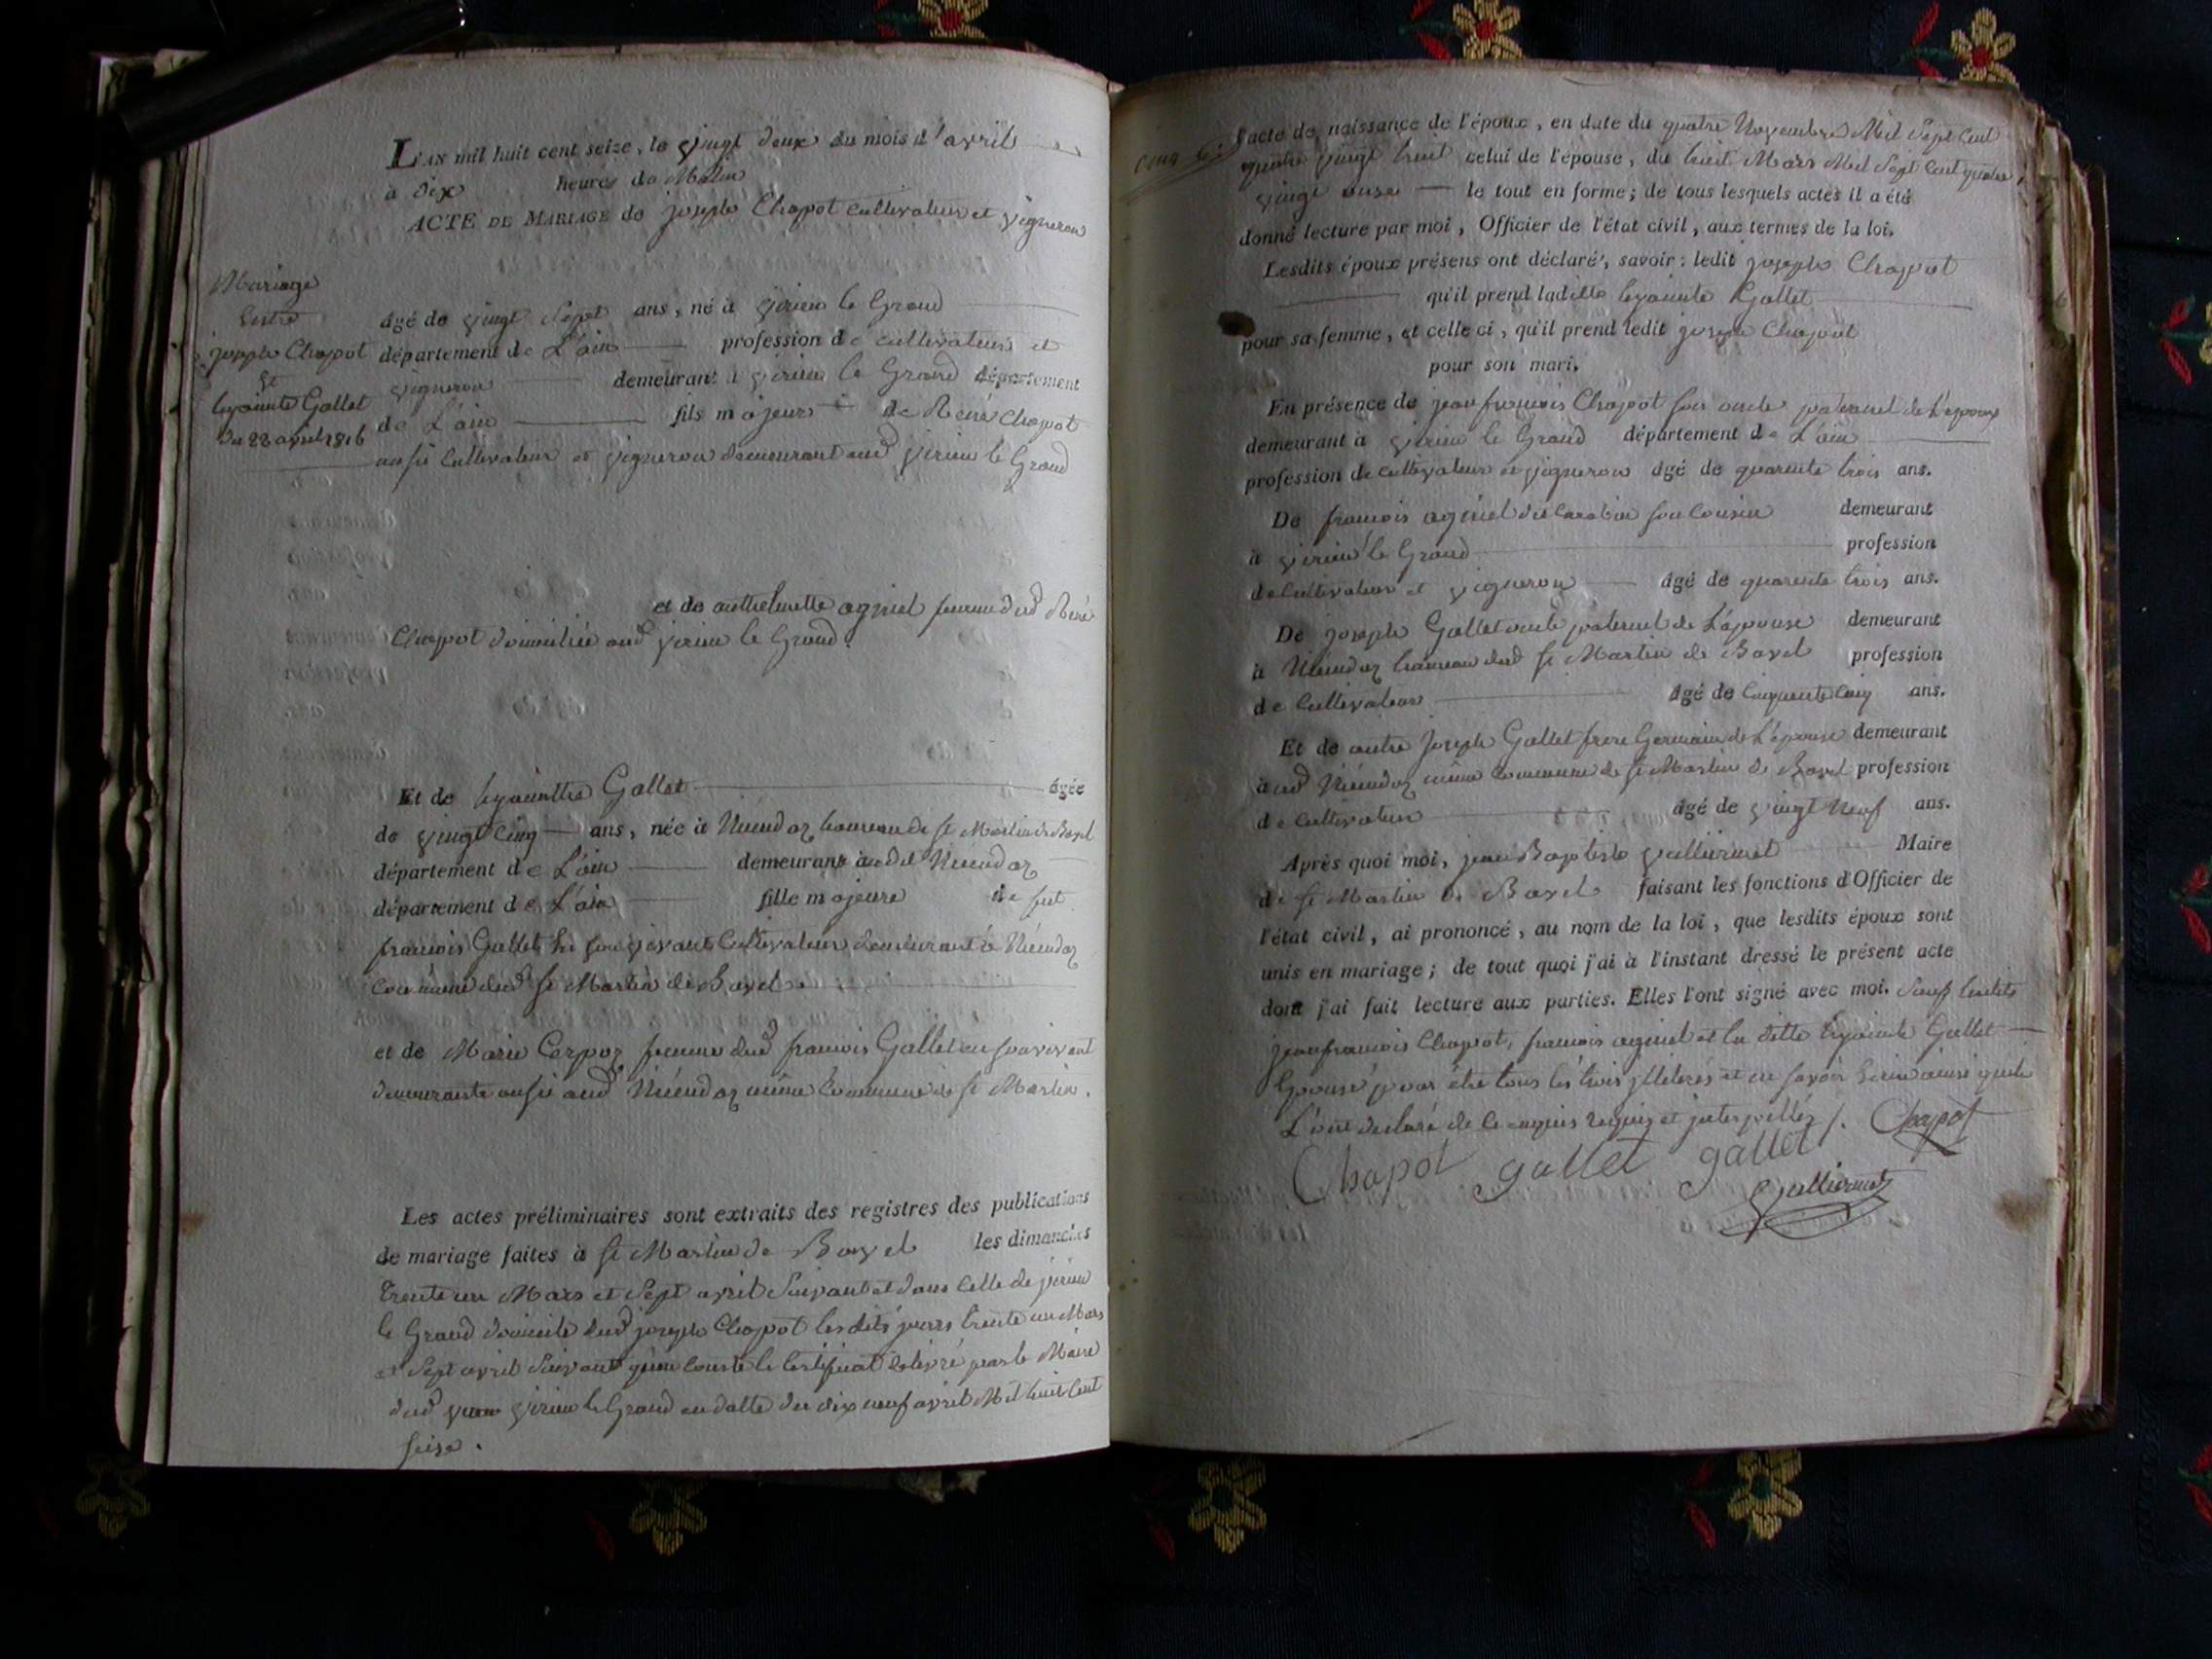 L'AN mil huit cent seize, le vingt deux du mois d'avril
à dix heures du Matin
ACTE DE MARIAGE de joseph Chapot cultivateur et vigneron
Mariage
Entre
joseph Chapot
Et
hyacinte Gallet
du 22 avril 1816
âgé de vingt Sept ans, né à virieu le Grand
département de L'ain profession de cultivateur et
vigneron demeurant à virieu le Grand département
de L'ain fils majeur de René Chapot
aussi Cultivateur et vigneron demeurant aud virieu le Grand
et de anthelmette agniel femme dud René
Chapot domiciliée aud virieu le Grand.
Et de hyacinthe Gallet âgée
de vingt Cinq ans, née à hameau de St Martin de Bavel
département de L'ain demeurant audit
département de L'ain fille majeure de fut
francois Gallet En son vivant Cultivateur demeurant à
Commune dud St Martin de Bavel
et de Marie Cerpoz femme dud francois Gallet en son vivant
demeurante aussi aud même Commune de St Martin.
Les actes préliminaires sont extraits des registres des publications
de mariage faites à St Martin de Bavel les dimanches
Trente un Mars et Sept avril Suivant et dans Celle de virieu
le Grand domicile dud joseph Chapot lesdits jours trente un Mars
et Sept avril Suivant Conste le Certificat délivré par le Maire
dud virieu le Grand en datte du dix neuf avril Mil huit Cent
Seise.
l'acte de naissance de l'époux, en date du quatre Novembre Mil Sept Cent
quatre vingt huit celui de l'épouse, du huit Mars Mil Sept Cent quatre
vingt onse le tout en forme; de tous lesquels actes il a été
donné lecture par moi, Officier de l'état civil, aux termes de la loi.
Lesdits époux présens ont déclaré, savoir: ledit joseph Chapot
qu'il prend ladite hyacinte Gallet
pour sa femme, et celle ci, qu'il prend ledit joseph Chapot
pour son mari.
En présence de jean francois Chapot son oncle paternel de L'epoux
demeurant à virieu le Grand département de L'ain
profession de cultivateur et vigneron âgé de quarente trois ans.
De francois agniel son Cousin demeurant
à virieu le Grand profession
de Cultivateur et vigneron âgé de quarente trois ans.
De joseph Gallet oncle paternel de L'épouse demeurant
à hameau dud St Martin de Bavel profession
de Cultivateur âgé de Cinquente Cinq ans.
Et de autre Joseph Gallet frere Germain de L'épouse demeurant
à aud même Commune de St Martin de Bavel profession
de Cultivateur âgé de vingt Neuf ans.
Après quoi moi, jean Baptiste vulliermet Maire
de St Martin de Bavel faisant les fonctions d'Officier de
l'état civil, ai prononcé, au nom de la loi, que lesdits époux sont
unis en mariage; de tout quoi j'ai à l'instant dressé le présent acte
dont j'ai fait lecture aux parties. Elles l'ont signé avec moi. Sauf lesdits
jean francois Chapot, francois agniel et la ditte hyacinte Gallet
Epouse pour être tous les trois jlleterés et ne savoir Ecrire ainsi qu'ils
L'ont declaré de Ce enquis requis et jnterpellés /. Chapot
Chapot gallet gallet
Vulliermet